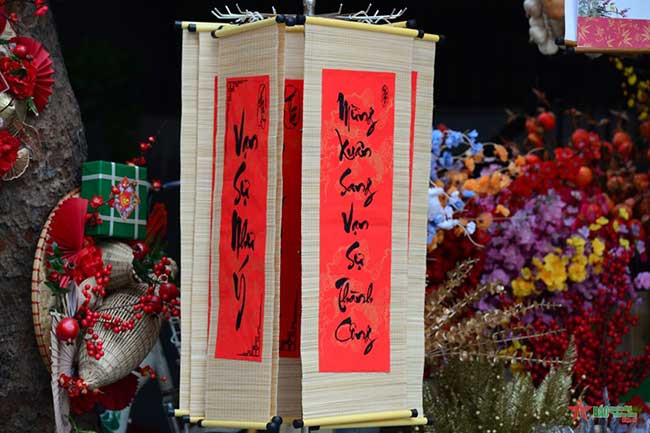 Vạn
Sự
Như
Ý
Mừng
Xuân
Sang
Vạn
Sự
Thành
Công